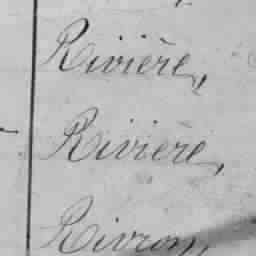 Rivière,
Rivière,
Rivron,